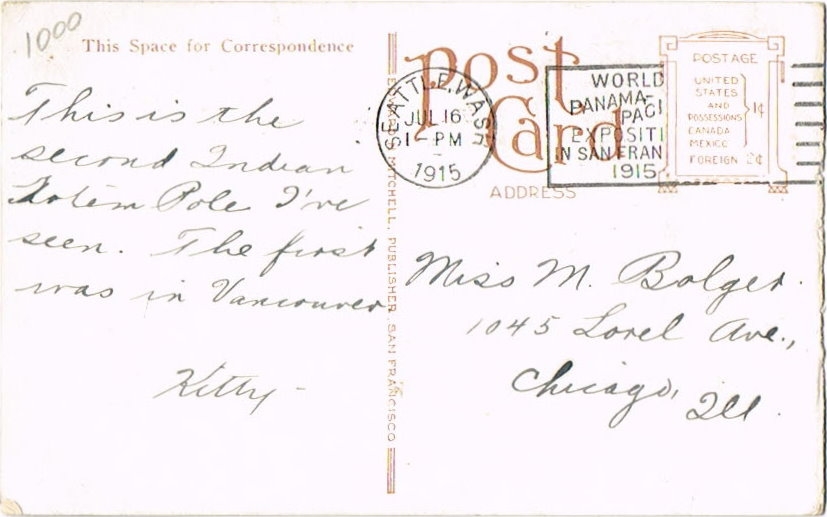 1000
This Space for Correspondence
This is the
second Indian
Totem Pole I've
seen. The first
was in Vancouver
Kitty -
EDWARD H. MITCHELL, PUBLISHER, SAN FRANCISCO
Post
Card
ADDRESS
SEATTLE, WASH
JUL 16
1 - PM
1915
WORLD
PANAMA-
PACI
EXPOSITI
IN SAN FRAN
1915
POSTAGE
UNITED
STATES
AND
POSSESSIONS
CANADA
MEXICO
1¢
FOREIGN 2¢
Miss M. Bolger.
1045 Lorel Ave.,
Chicago,
Ill.